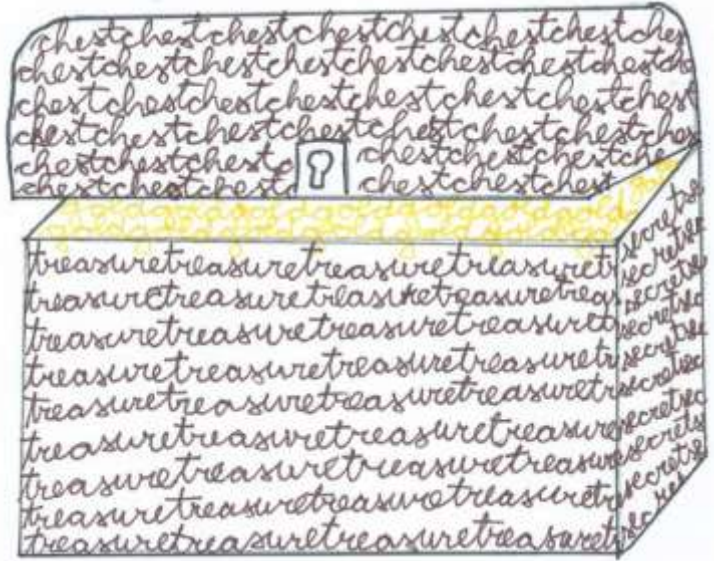 chestchestchestchestchestchestchestches
chestchestchestchestchestchestchestche
chestchestchestchestchestchestchest
chestchestchestchestchestchestchest
chestchestchestc chestchestchestche
chestchestchestc chestchestchest
goldgoldgoldgoldgoldgold
treasuretreasuretreasuretreasuret
treasuretreasuretreasuretreasuretreas
treasuretreasuretreasuretreasuret
treasuretreasuretreasuretreasuret
treasuretreasuretreasuretreasuret
treasuretreasuretreasuretreasure
treasuretreasuretreasuretreasure
treasuretreasuretreasuretreasuret
treasuretreasuretreasuretreasuret
secretse
secretse
secretse
secretse
secretse
secretsec
secretsec
secretse
secretse